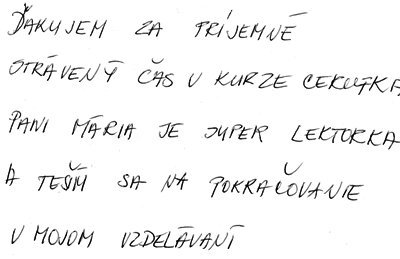 ĎAKUJEM ZA PRÍJEMNÉ
OTRÁVENÝ ČAS V KURZE CEKUĽKA
PANI MÁRIA JE SUPER LEKTORKA
A TEŠÍM SA NA POKRAČOVANIE
V MOJOM VZDELÁVANÍ